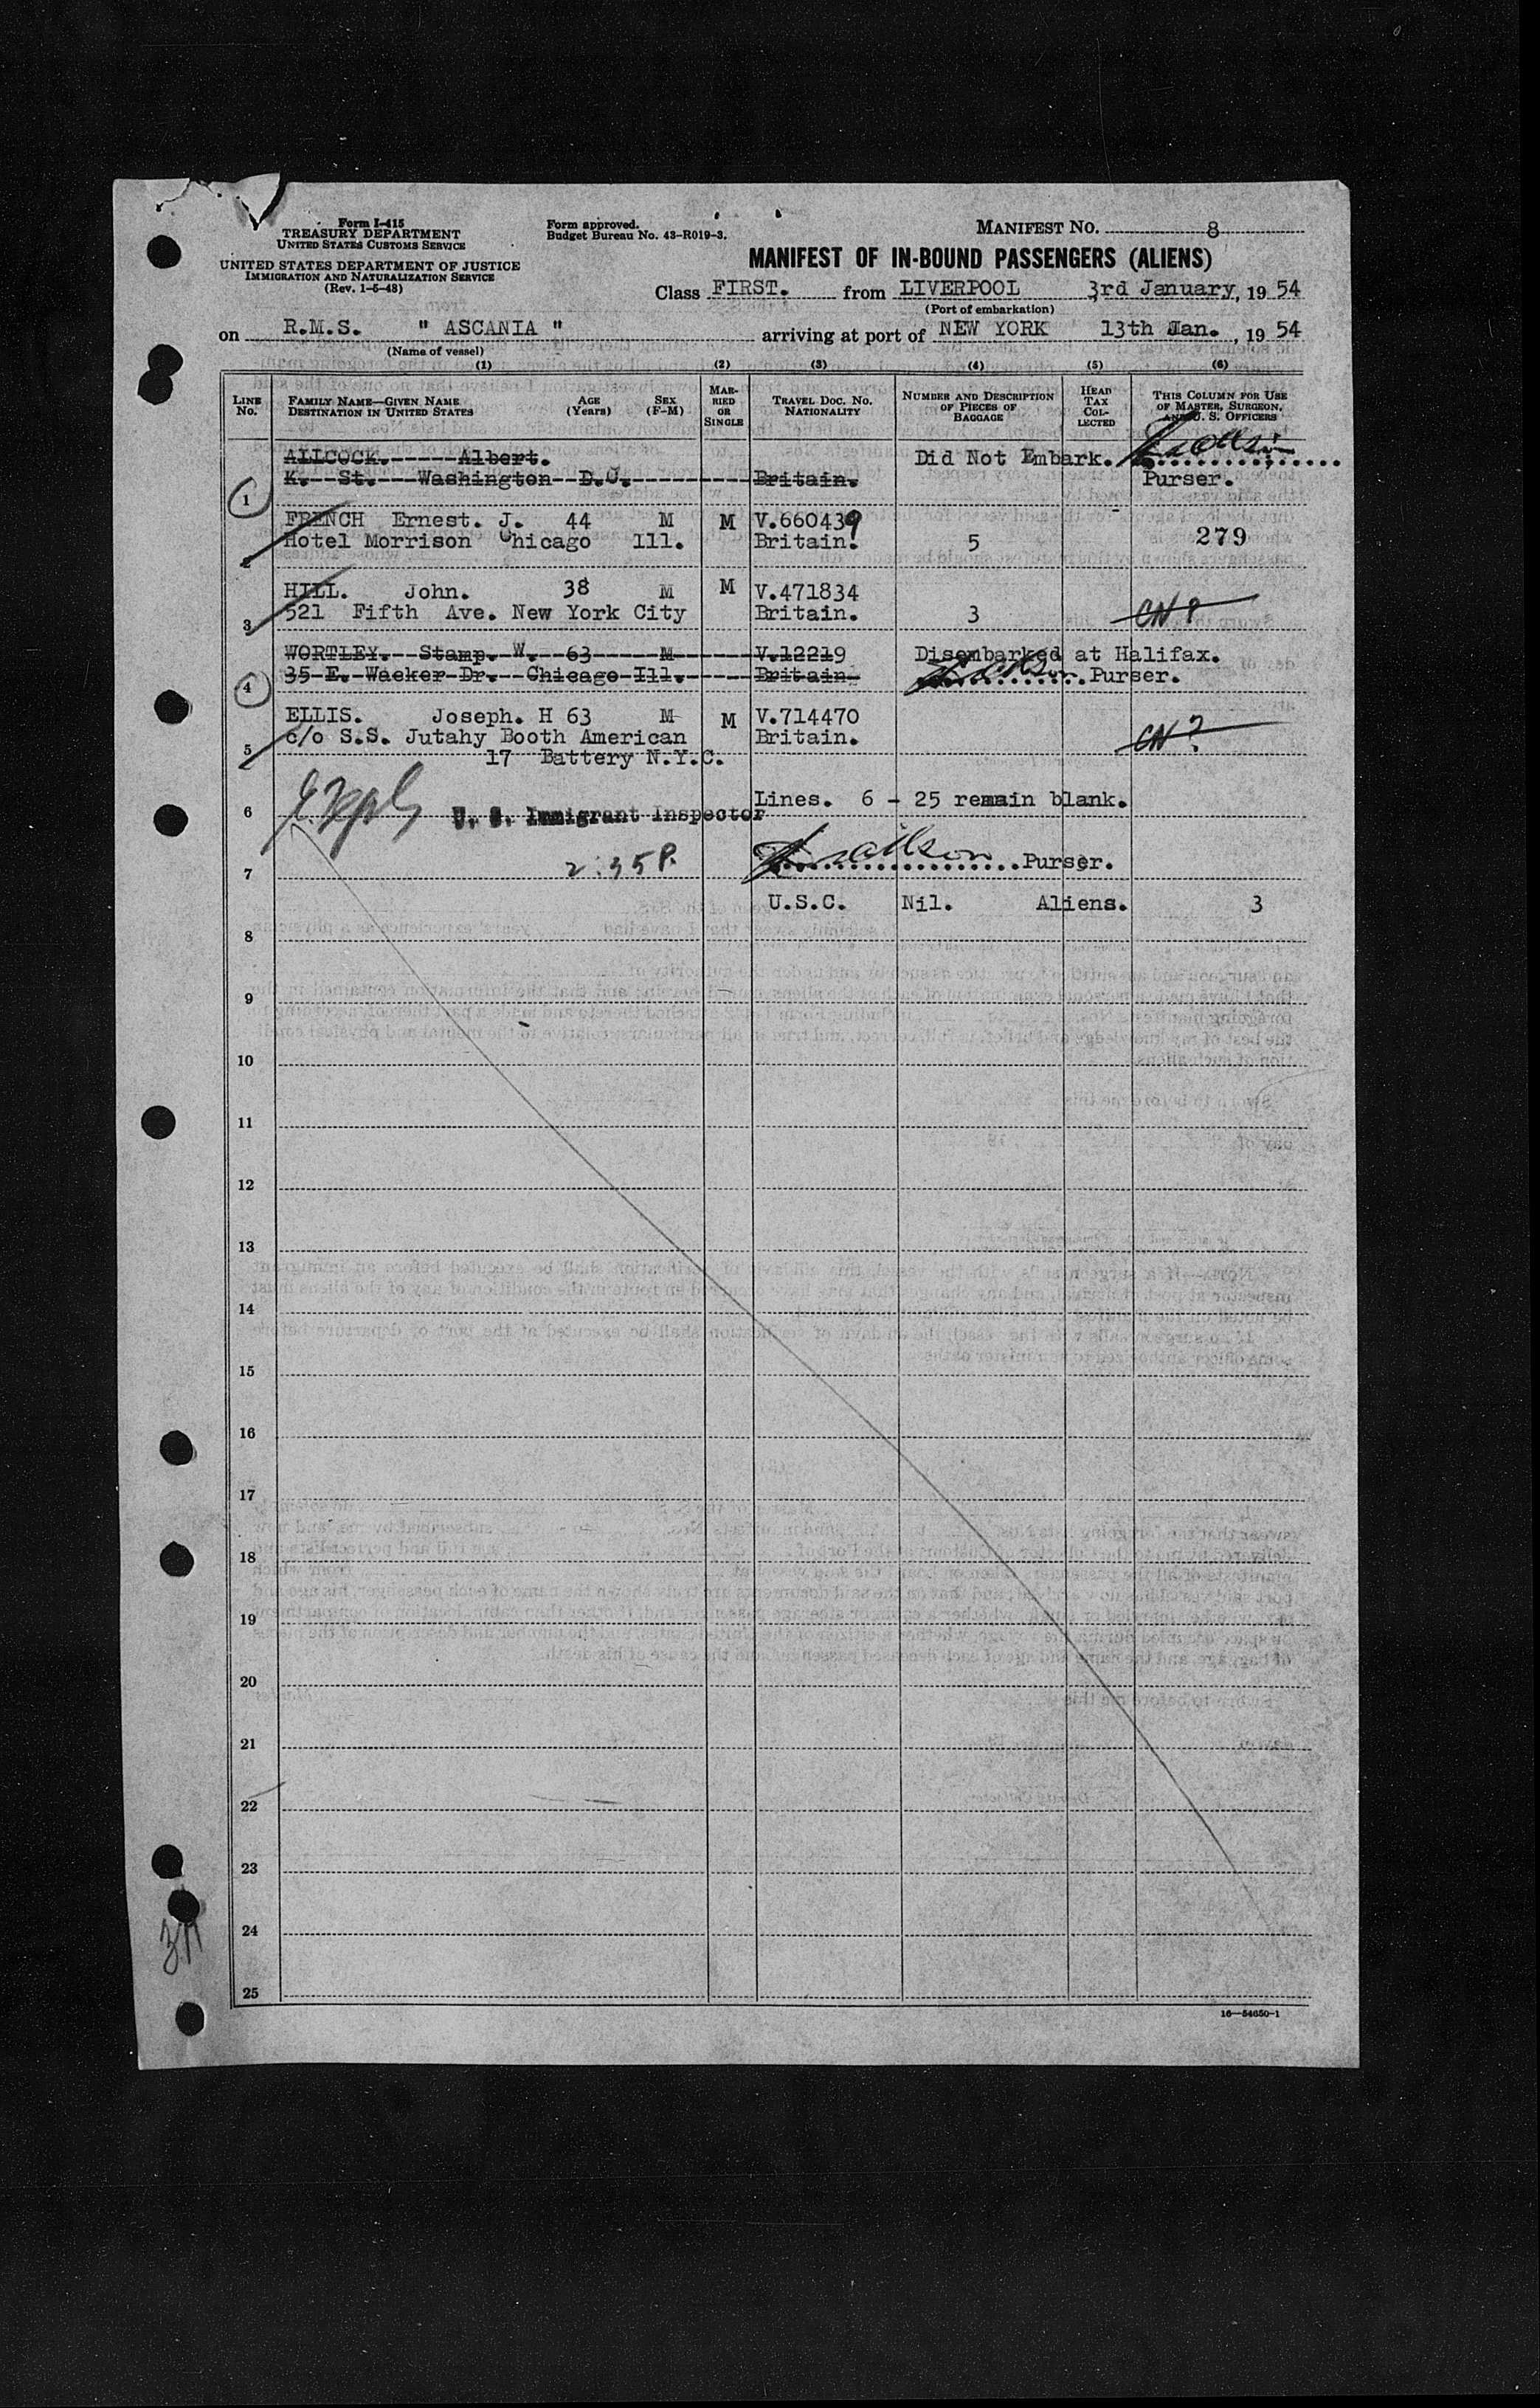 Form I-415
TREASURY DEPARTMENT
UNITED STATES CUSTOMS SERVICE
UNITED STATES DEPARTMENT OF JUSTICE
IMMIGRATION AND NATURALIZATION SERVICE
(Rev. 1-5-48)
Form approved.
Budget Bureau No. 43-R019-3.
MANIFEST NO. 8
MANIFEST OF IN-BOUND PASSENGERS (ALIENS)
Class FIRST. from LIVERPOOL 3rd January, 19 54
(Port of embarkation)
on R.M.S. " ASCANIA " arriving at port of NEW YORK 13th Jan. , 19 54
(Name of vessel)
(1) (2) (3) (4) (5) (6)
LINE No. FAMILY NAME—GIVEN NAME DESTINATION IN UNITED STATES AGE (Years) SEX (F-M) MARRIED OR SINGLE TRAVEL DOC. NO. NATIONALITY NUMBER AND DESCRIPTION OF PIECES OF BAGGAGE HEAD TAX COLLECTED THIS COLUMN FOR USE OF MASTER, SURGEON, AND U. S. OFFICERS
ALLCOCK. Albert. Did Not Embark.
1 K. St. Washington D.C. Britain. Purser.
FRENCH Ernest. J. 44 M M V.660439
2 Hotel Morrison Chicago Ill. Britain. 5 279
HILL. John. 38 M M V.471834
3 521 Fifth Ave. New York City Britain. 3 CN ?
WORTLEY. Stamp. W. 63 M V.12219 Disembarked at Halifax.
4 35 E. Wacker Dr. Chicago Ill. Britain. Purser.
ELLIS. Joseph. H 63 M M V.714470
5 c/o S.S. Jutahy Booth American Britain. CN ?
17 Battery N.Y.C.
6 Lines. 6 - 25 remain blank.
U. S. Immigrant Inspector
7 2:35 P. Purser.
U.S.C. Nil. Aliens. 3
8
9
10
11
12
13
14
15
16
17
18
19
20
21
22
23
24
25
16—54650-1